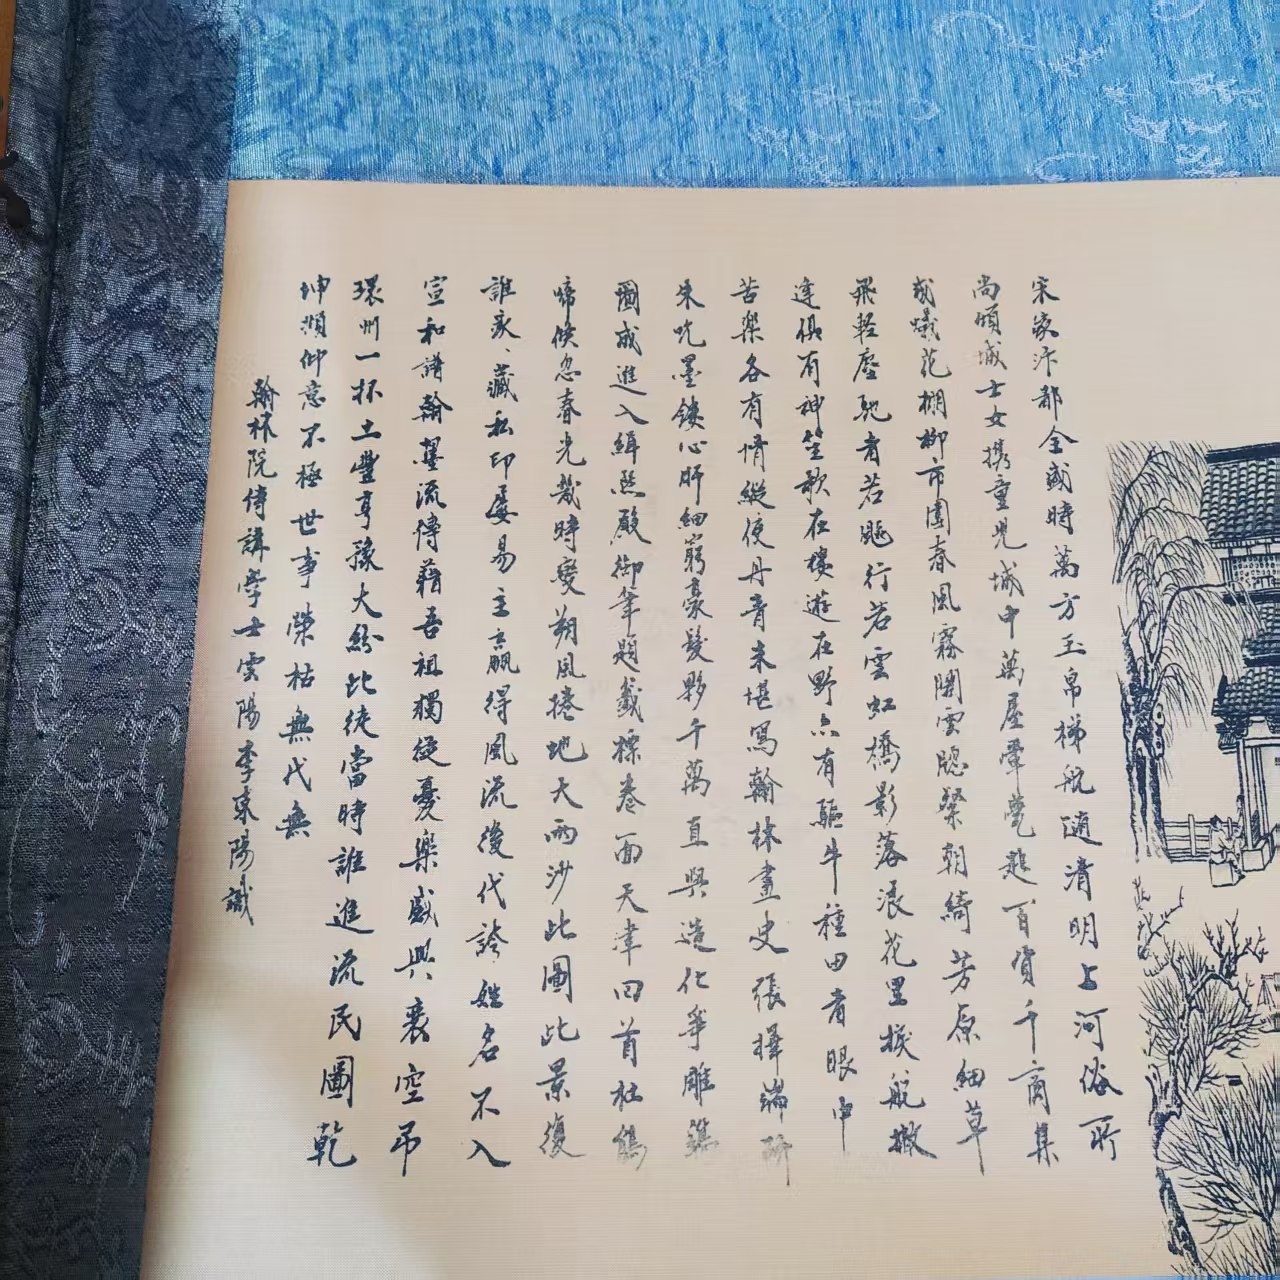 宋家汴都全盛時萬方玉帛梯航隨清明上河俗所
尚傾城士女携童兒城中萬屋翚甍起百貨千商集
成蟻花棚柳市圍春風霧閣雲牕粲朝綺芳原細草
飛輕塵馳者若飈行若雲虹橋影落浪花里捩舵撇
逢俱有神笙歌在樓遊在野亦有驅牛種田者眼中
苦樂各有情縱使丹青未堪寫翰林畫史張擇端研
朱吮墨鏤心肝細窮豪髮夥千萬直與造化爭雕鐫
圖成進入緝熙殿御筆題籤標卷面天津回首杜鵑
啼倏忽春光幾時變朔風捲地天雨沙此圖此景復
誰家、藏私印屡易主贏得風流後代誇姓名不入
宣和譜翰墨流傳藉吾祖獨從憂樂感興衰空吊
環州一抔土豐亨豫大紛比徒當時誰進流民圖乾
坤頫仰意不極世事榮枯無代無
翰林院侍講學士雲陽李東陽識